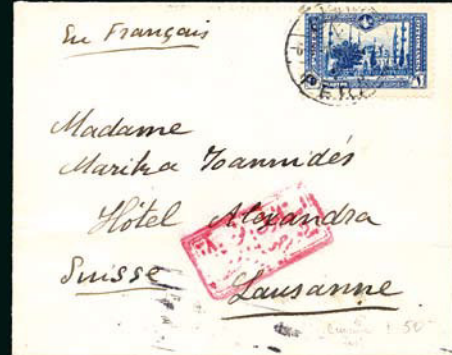 En Français
Madame
Marika Joannidés
Hôtel Alexandra
Suisse
Lausanne